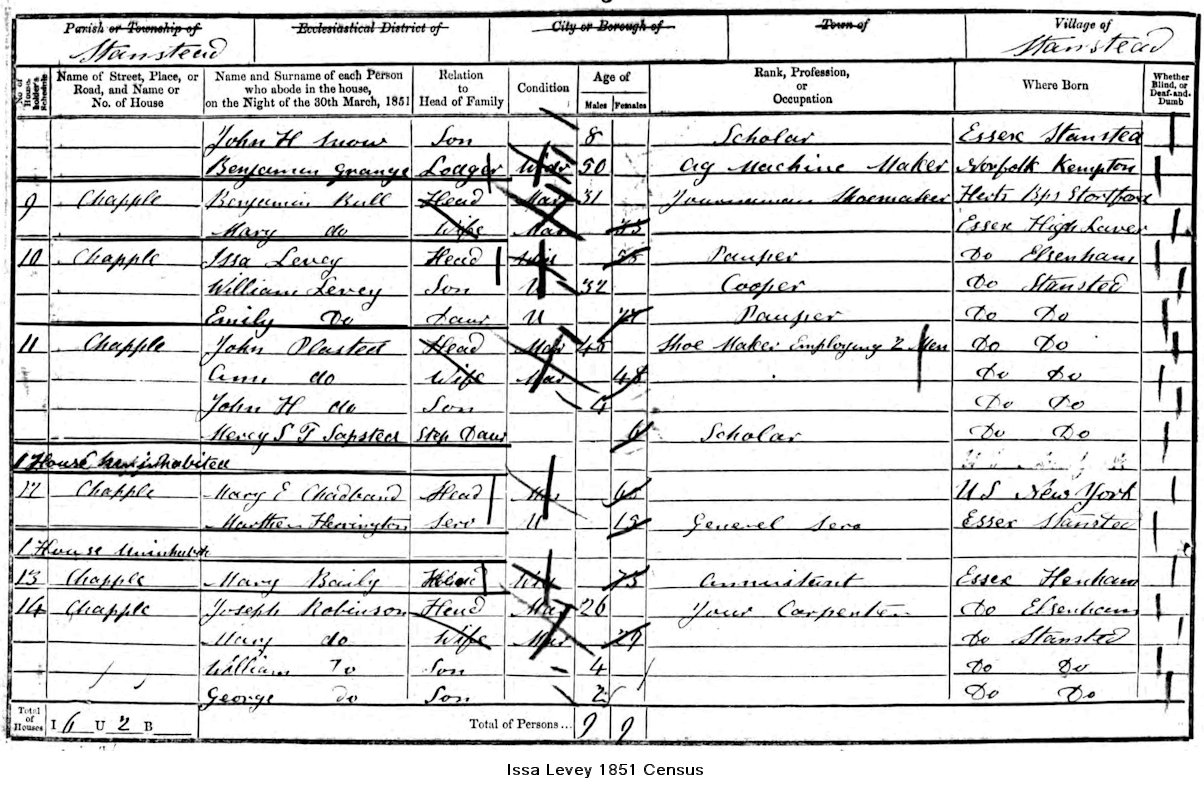 Parish or Township of Ecclesiastical District of City or Borough of Town of Village of
Stanstead Stanstead
No. of House-holder's Schedule Name of Street, Place, or Road, and Name or No. of House Name and Surname of each Person who abode in the house, on the Night of the 30th March, 1851 Relation to Head of Family Condition Age of Males Females Rank, Profession, or Occupation Where Born Whether Blind, or Deaf-and-Dumb
John H Snow Son 8 Scholar Essex Stansted
Benjamin Grange Lodger 50 Ag Machine Maker Norfolk Kempton
9 Chapple Benjamin Bull Head Mar 31 Journeyman Shoemaker Herts Bps Stortford
Mary do Wife Mar Essex High Laver
10 Chapple Issa Levey Head Pauper Do Elsenham
William Levey Son U 32 Cooper Do Stansted
Emily Do Daur U Pauper Do Do
11 Chapple John Plasted Head Mar 45 Shoe Maker Employing 2 Men Do Do
Ann do Wife Mar 48 Do Do
John H do Son Do Do
Mercy S T Sapsted Step Daur Scholar Do Do
1 House uninhabited
12 Chapple Mary E Chadband Head U S New York
Marther Herrington Serv U 19 General Serv Essex Stansted
1 House uninhabit
13 Chapple Mary Baily Head Annuitant Essex Henham
14 Chapple Joseph Robinson Head Mar 26 Jour Carpenter Do Elsenham
Mary do Wife Mar 29 Do Stansted
William Do Son 4 Do Do
George do Son 2 Do Do
Total of Houses I 6 U 2 B Total of Persons... 9 9
Issa Levey 1851 Census